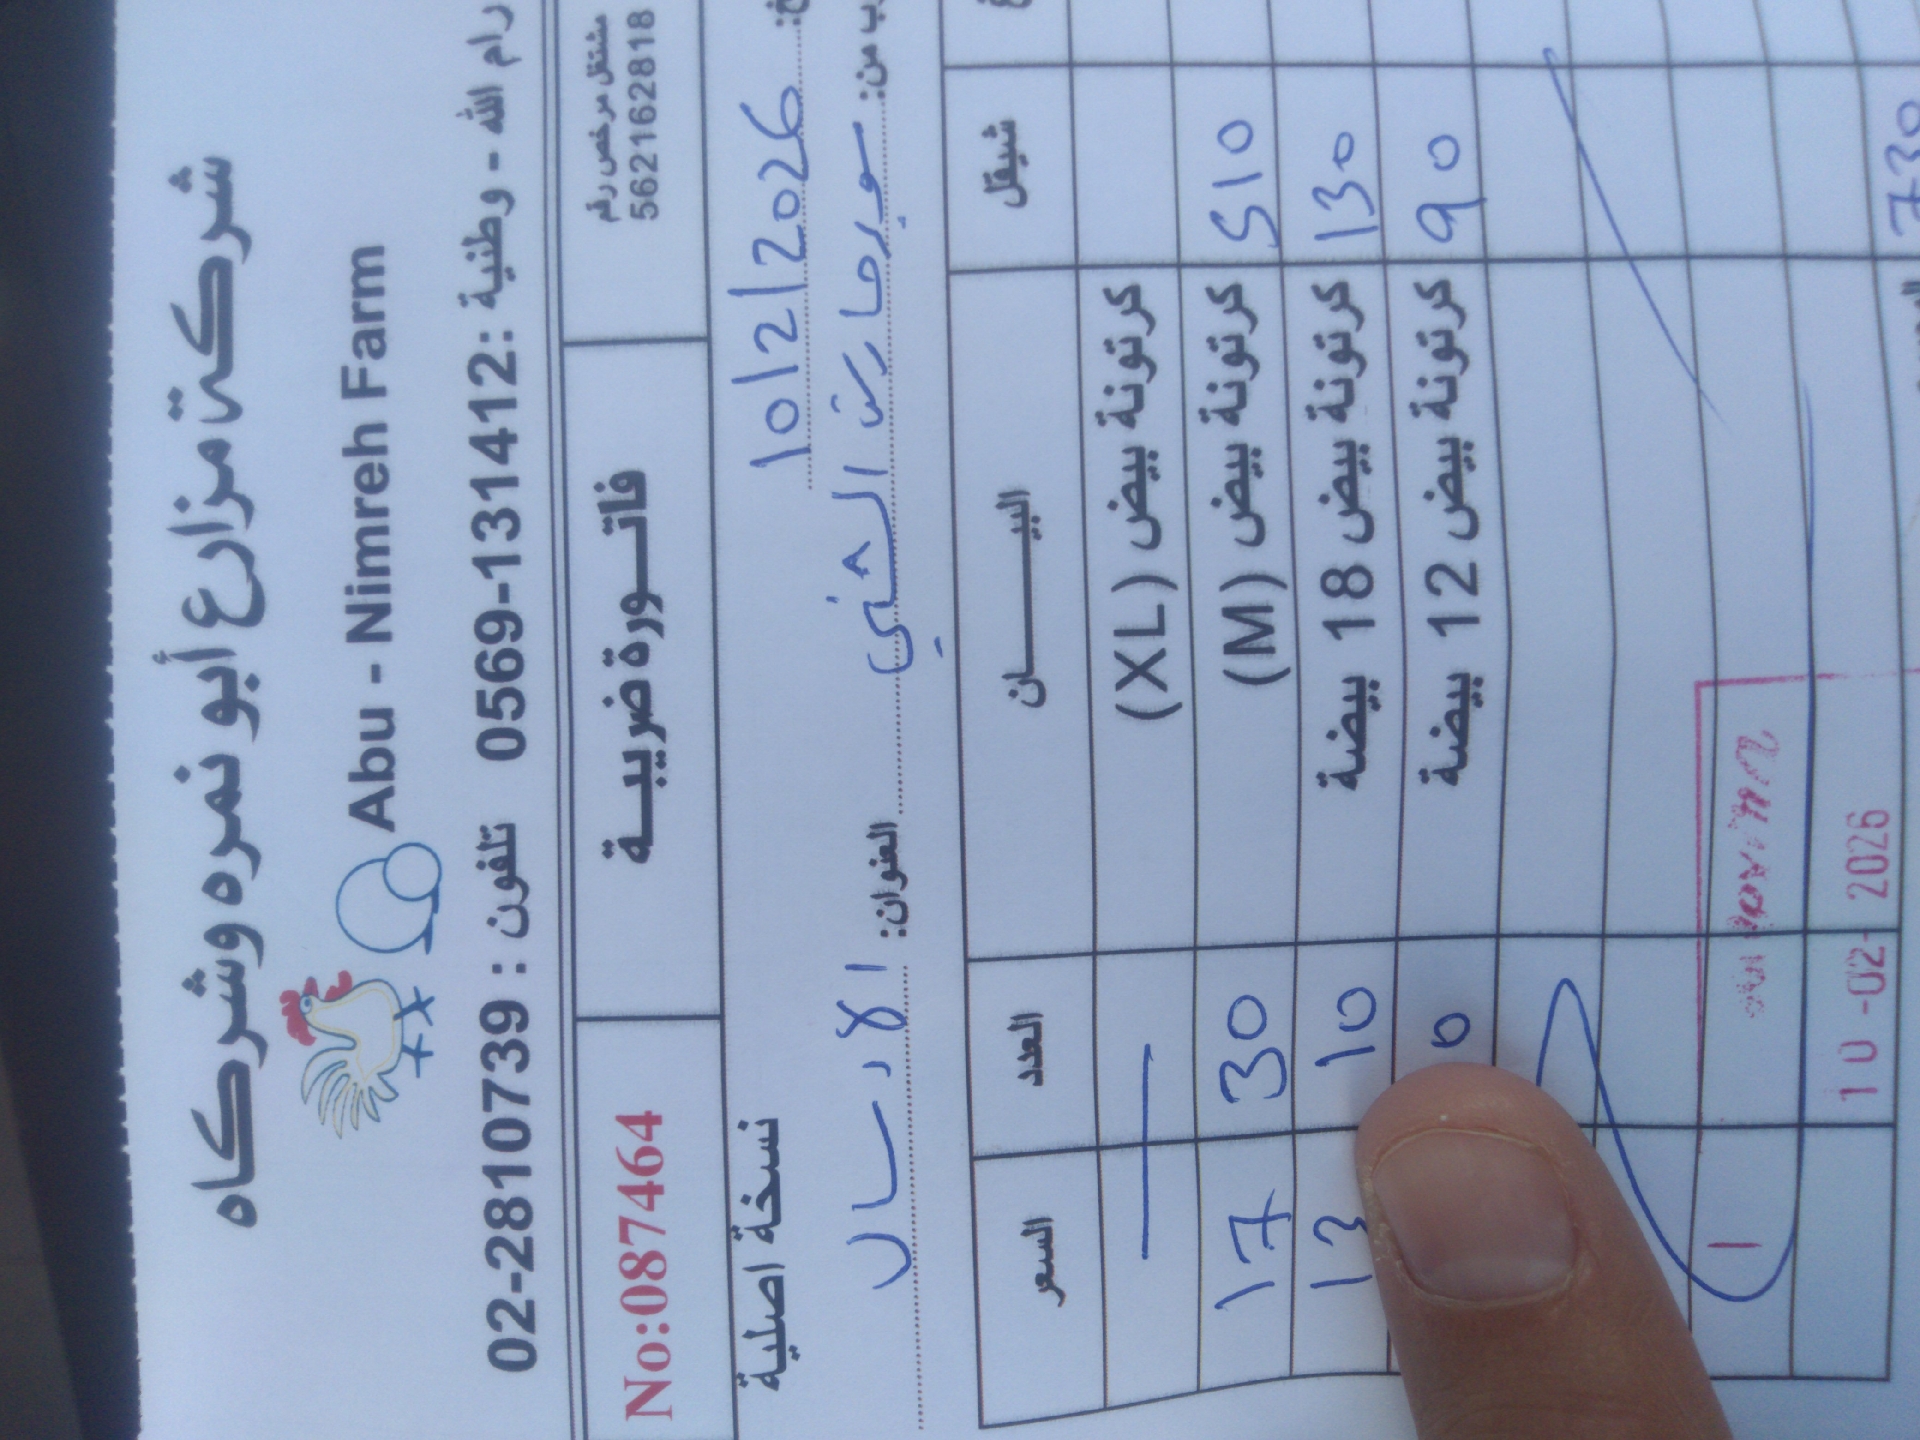 شركة مزارع أبو نمره وشركاه
Abu - Nimreh Farm
رام الله - وطنية: 0569-131412 تلفون: 02-2810739
مشتغل مرخص رقم
562162818
فاتورة ضريبة
No:087464
10/2/2026
نسخة اصلية
من: سوبرماركت الشني العنوان: الارسال
شيقل البيان العدد السعر
كرتونة بيض (XL) —
510 كرتونة بيض (M) 30 17
130 كرتونة بيض 18 بيضة 10 13
90 كرتونة بيض 12 بيضة
730
10-02-2026